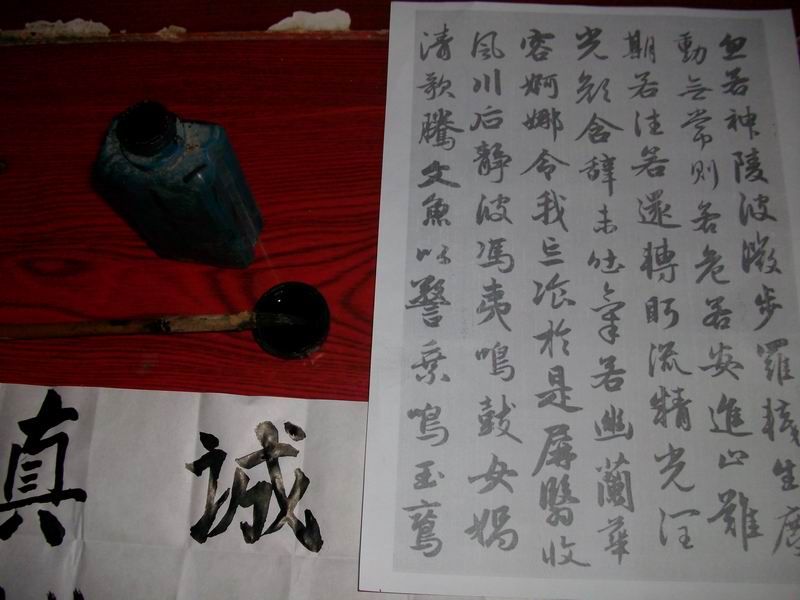 忽若神陵波微步羅襪生塵
動無常則若危若安進止難
期若往若還轉眄流精光潤
玉顏含辭未吐氣若幽蘭華
容婀娜令我忘飡於是屏翳收
風川后靜波馮夷鳴鼓女媧
清歌騰文魚以警乘鳴玉鸞
真誠